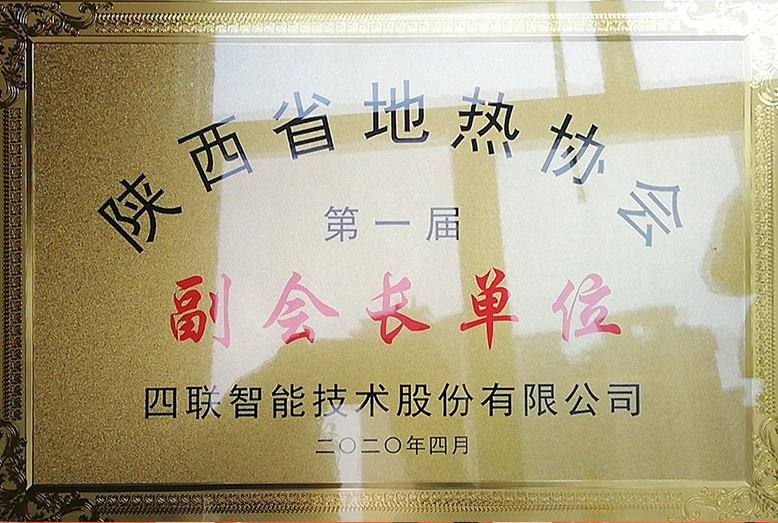 陕西省地热协会
第一届
副会长单位
四联智能技术股份有限公司
二〇二〇年四月